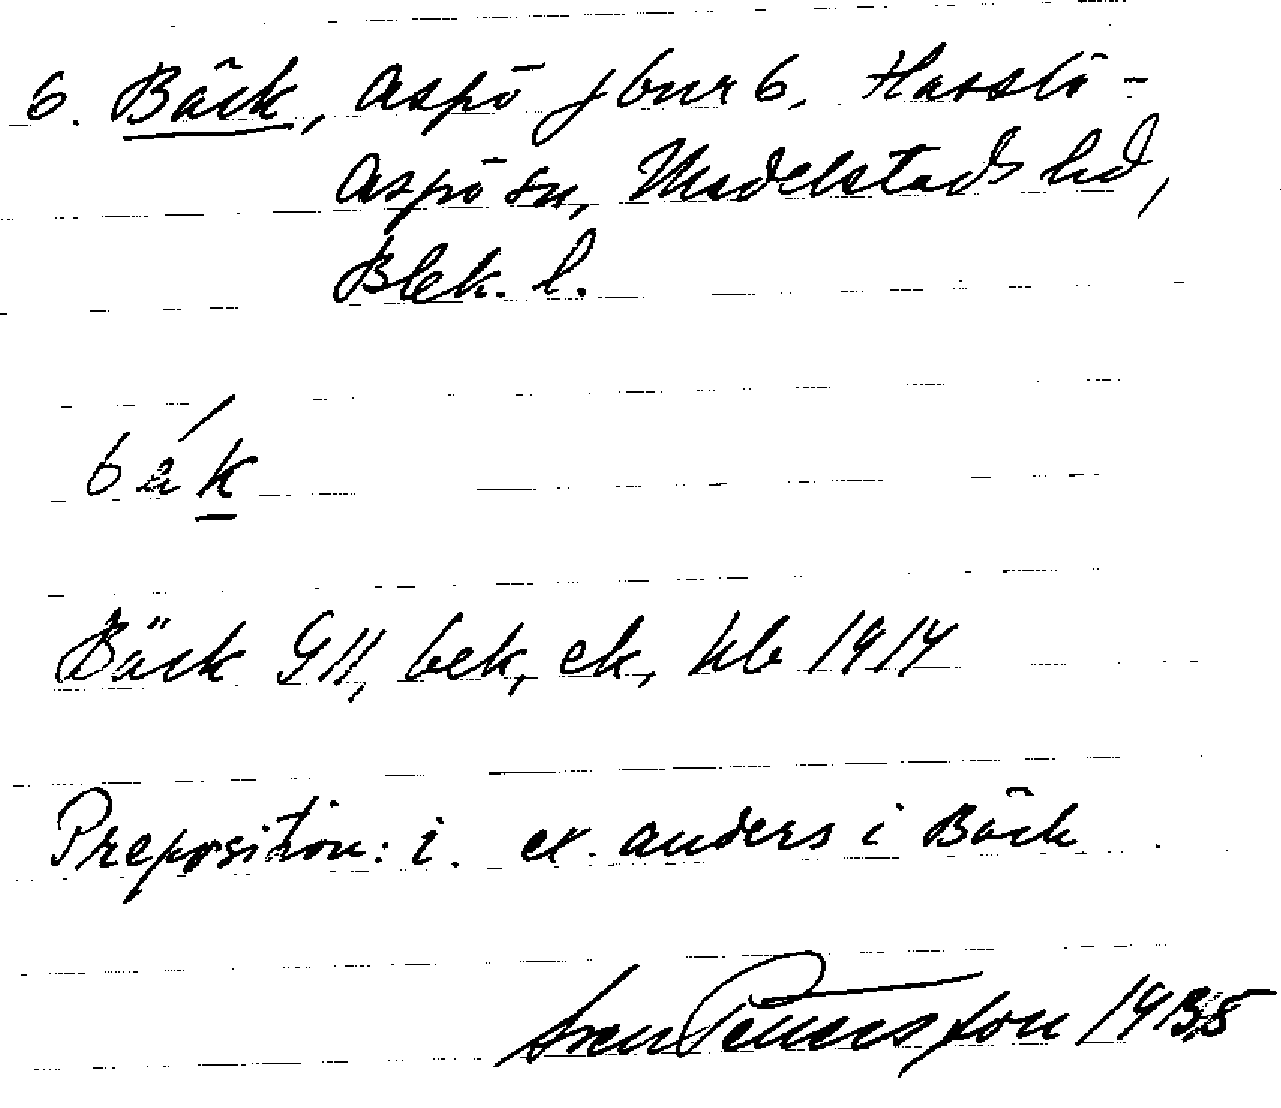 6. Bäck, Aspö jbnr 6, Hasslö-
Aspö sn, Medelstads hd,
Blek. l.
bäk
Bäck GH, bek, ek, hb 1914
Preposition: i. ex. anders i Bäck
Sven Pettersson 1935